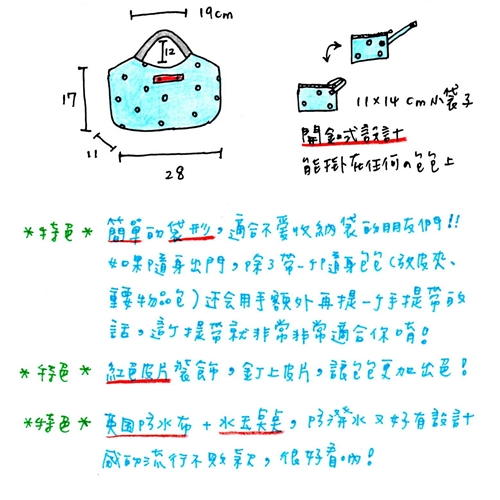 19cm
12
17
11
28
11×14 cm 小袋子
開釦式設計
能掛在任何の包包上
*特色* 簡單的袋形，適合不愛收納袋的朋友們!!
如果隨身出門，除了帶一个隨身包包(放皮夾、
重要物品包)还会用手額外再提一个手提帶的
話，這个提帶就非常非常適合你唷!
*特色* 紅色皮片裝飾，釘上皮片，讓包包更加出色!
*特色* 英国防水布 + 水玉点点，防潑水又好有設計
感的流行不敗款，很好看吶!